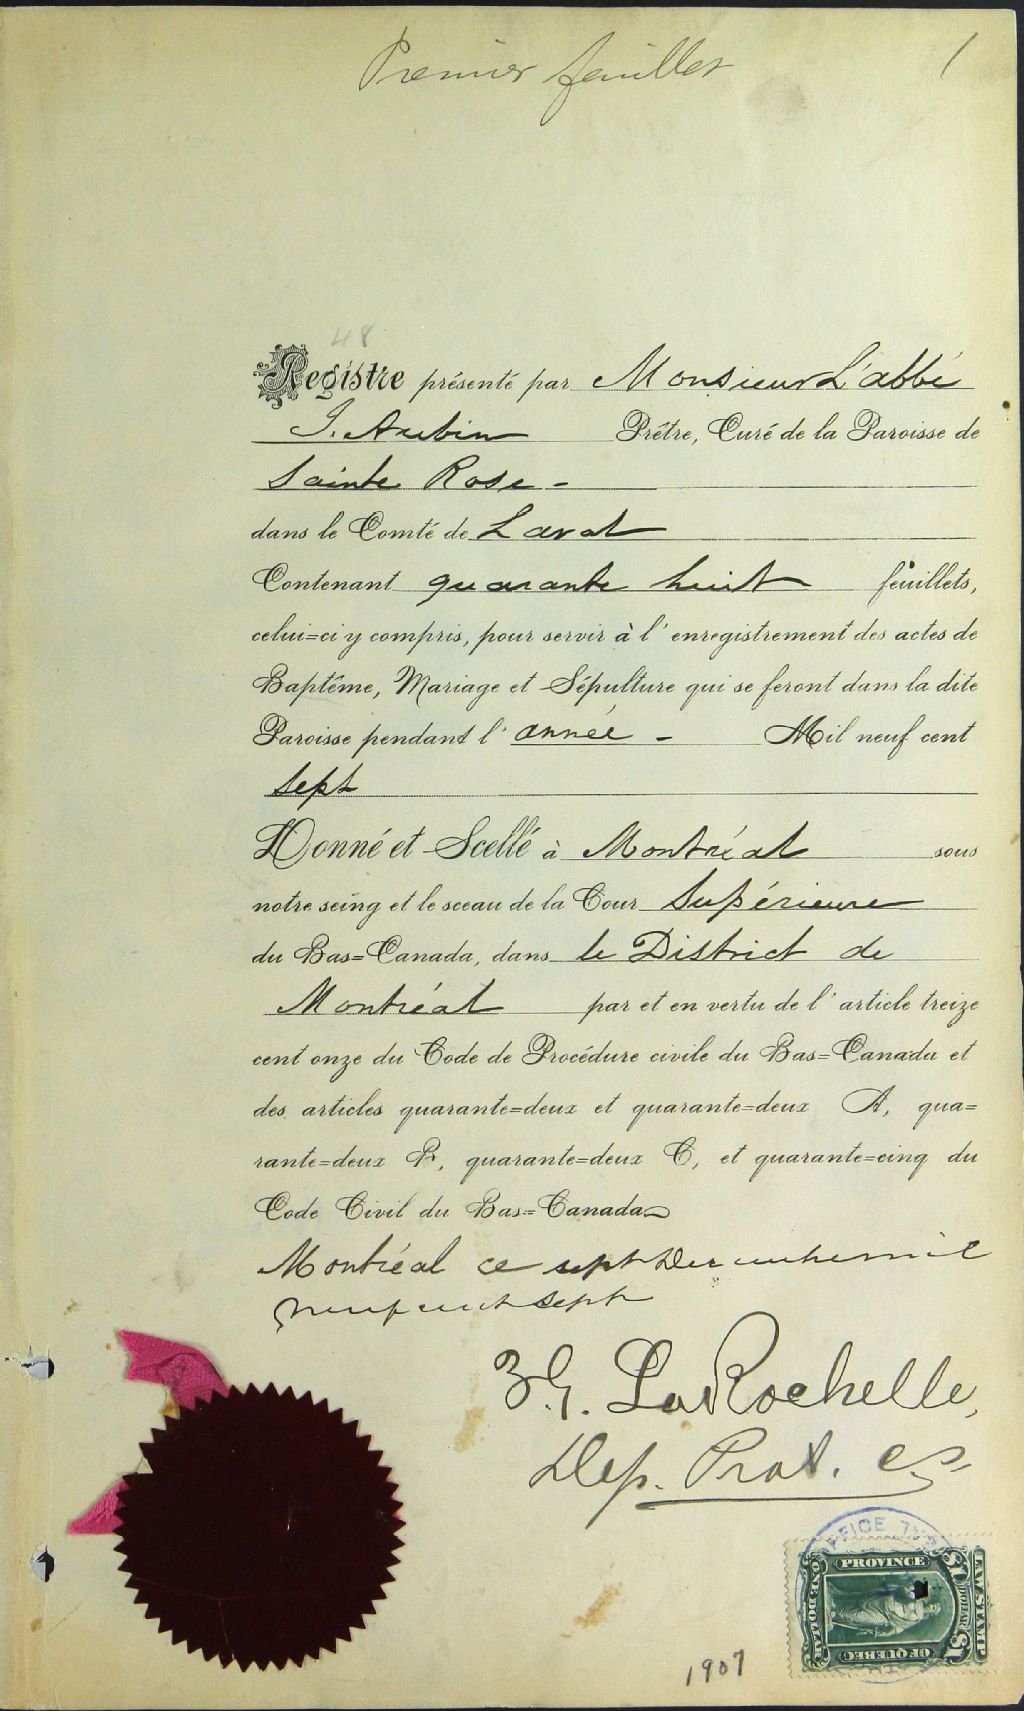 Premier feuillet
1
48
Registre présenté par Monsieur L'abbé
J. Aubin Prêtre, Curé de la Paroisse de
Sainte Rose -
dans le Comté de Laval
Contenant quarante huit feuillets,
celui=ci y compris, pour servir à l'enregistrement des actes de
Baptême, Mariage et Sépulture qui se feront dans la dite
Paroisse pendant l'année - Mil neuf cent
sept
Donné et Scellé à Montréal sous
notre seing et le sceau de la Cour Supérieure
du Bas=Canada, dans le District de
Montréal par et en vertu de l'article treize
cent onze du Code de Procédure civile du Bas=Canada et
des articles quarante=deux et quarante=deux A, qua=
rante=deux B, quarante=deux C, et quarante=cinq du
Code Civil du Bas=Canada
Montréal ce sept mil
neuf cent sept
LaRochelle,
Dep. Prot. C.S.
OFFICE
PROVINCE
OF QUEBEC
ONE DOLLAR
$1 DOLLAR $1
LAW STAMP
1907